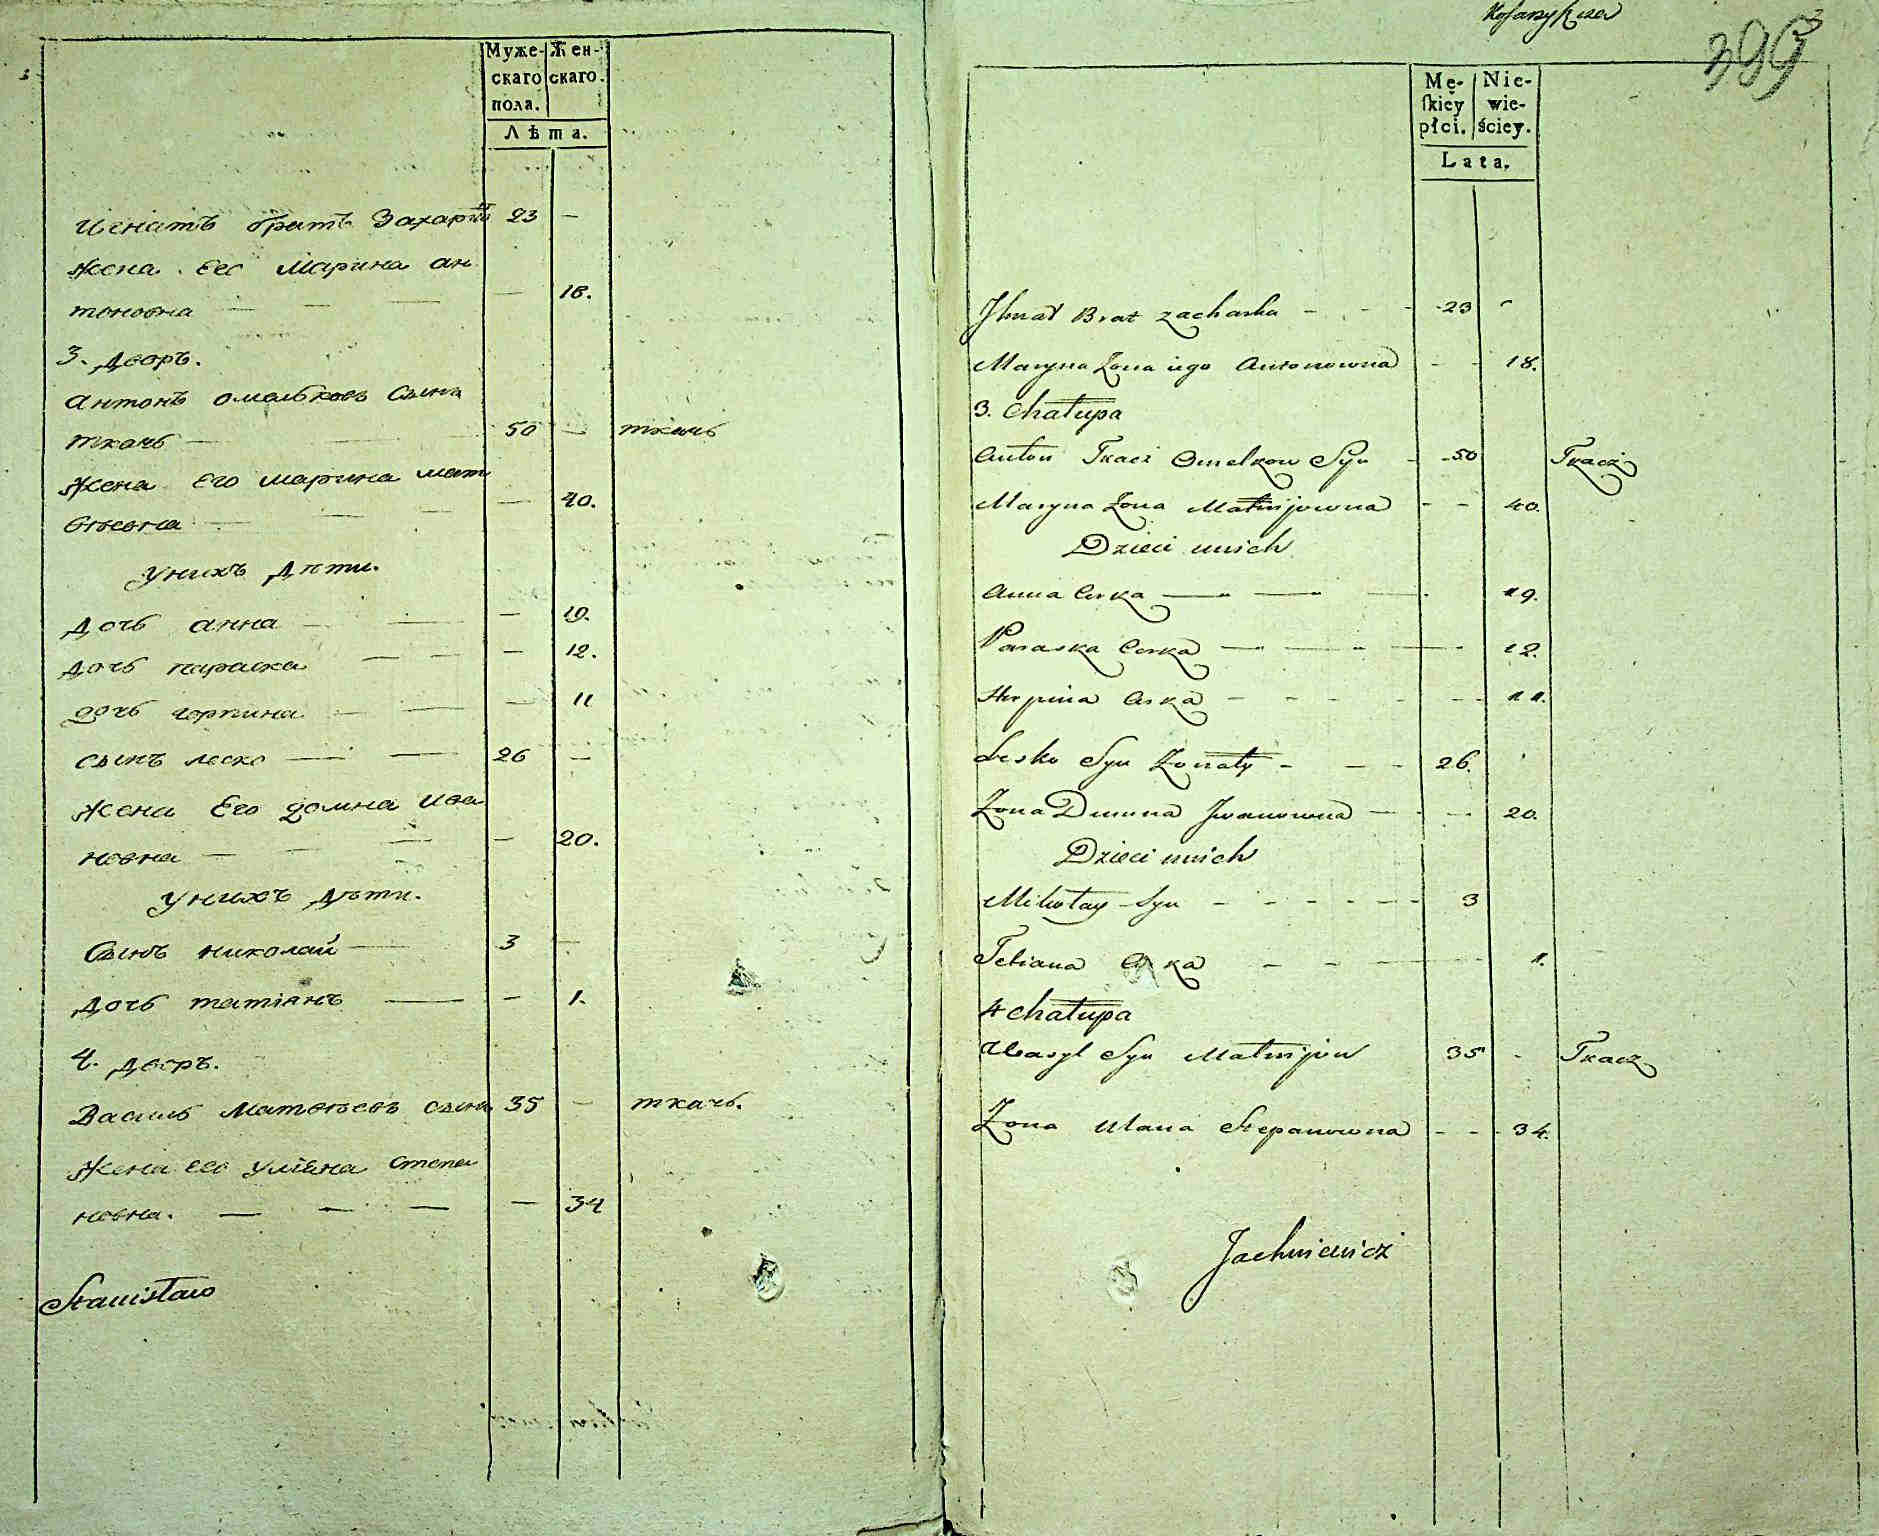 Муже-
скаго
пола.
Жен-
скаго.
Лѣта.
Игнатъ братъ Захарій 23 —
жена Его Марина ан
тоновна — — — — 18.
3. Дворъ.
антонъ омельковъ Сынъ
ткачъ — — 50 — ткачь
Жена Его марина мат
вѣевна — — — — 40.
у нихъ Дѣти.
Дочь анна — — — 19.
Дочь параска — — — 12.
дочь горпина — — — 11
сынъ леско — — 26 —
жена Его домна ива
новна — — — — 20.
у нихъ Дѣти.
Сынъ николай — 3 —
Дочь татіянъ — — 1.
4. Дворъ.
Василь Матвѣевъ сынъ 35 — ткачь.
Жена его уліяна степа
новна. — — — — 34
Stanisław
399
3
Mę-
skiey
płci.
Nie-
wie-
ściey.
Lata.
Ihnat Brat zacharka - - - 23 -
Maryna Zona iego Antonowna - - 18.
3. Chałupa
Anton Tkacz Omelkow Syn - - 50 Tkacz
Maryna Zona Matwijowna - - 40.
Dzieci unich
Anna Corka — — — 19.
Paraska Corka — — — 12.
Horpina Corka - - - - 11.
Lesko Syn Zonaty - - - 26.
Zona Dumna Iwanowna — - - 20.
Dzieci unich
Mikołay Syn - - - - - 3
Tetiana Corka - - — - 1.
4 Chałupa
Wasyl Syn Matwijow 35 - Tkacz
Zona Ulana Stepanowna - - - 34.
Jachniewicz